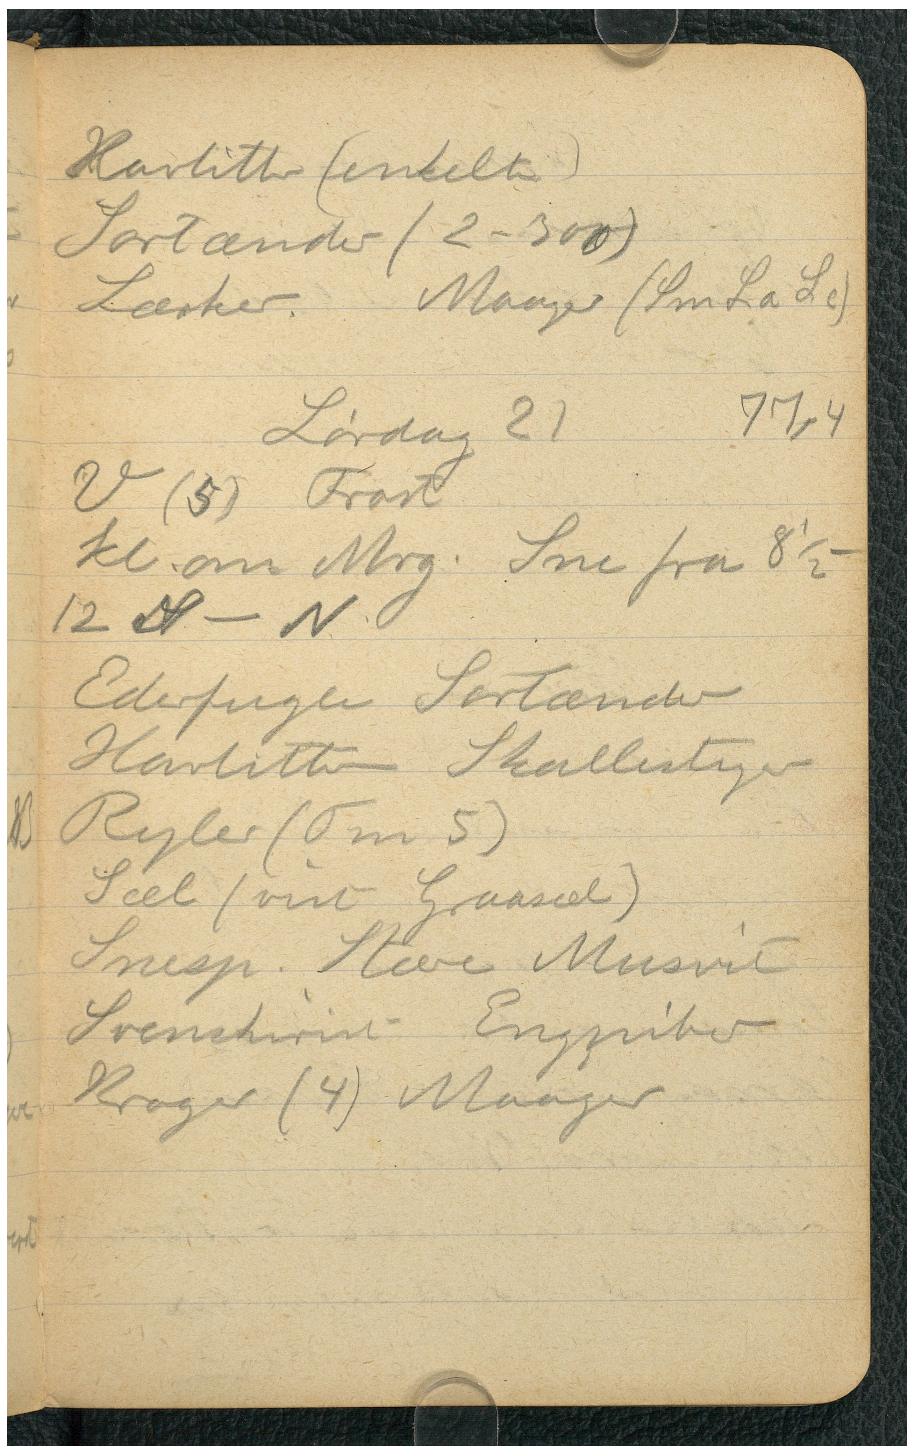 Havlitter (enkelte)
Sortænder (2-300)
Lærker. Maager (Sm La Sc)
Lørdag 21 77,4
V (5) Frost
kl. om Mrg. Sne fra 8½-
12 — N.
Ederfugle Sortænder
Havlitter Skallesluger
Ryler (Tm 5)
Sæl (vist Graasæl)
Snesp. Stære Musvit
Svenskirisk Engpiber
Krager (4) Maager